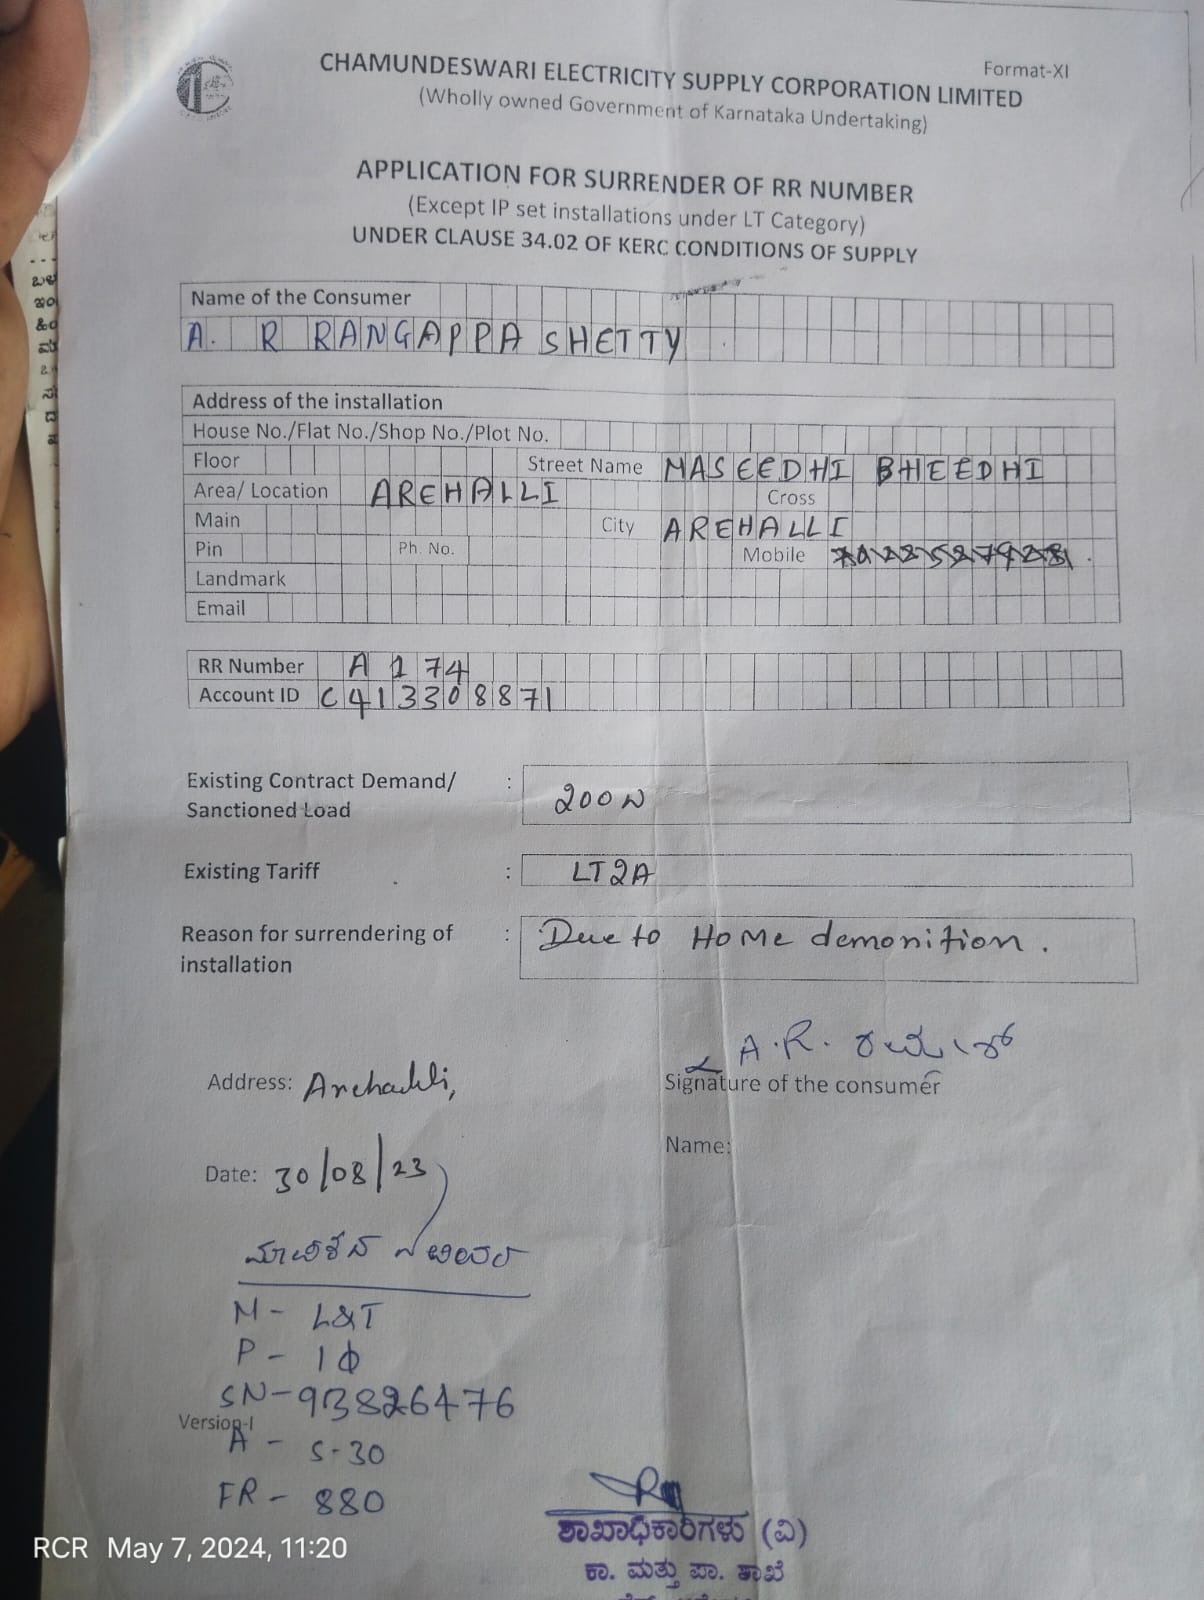 Format-XI
CHAMUNDESWARI ELECTRICITY SUPPLY CORPORATION LIMITED
(Wholly owned Government of Karnataka Undertaking)
APPLICATION FOR SURRENDER OF RR NUMBER
(Except IP set installations under LT Category)
UNDER CLAUSE 34.02 OF KERC CONDITIONS OF SUPPLY
Name of the Consumer
A. R RANGAPPA SHETTY
Address of the installation
House No./Flat No./Shop No./Plot No.
Floor Street Name MASEEDHI BHEEDHI
Area/ Location AREHALLI Cross
Main City AREHALLI
Pin Ph. No. Mobile
Landmark
Email
RR Number A 174
Account ID C413308871
Existing Contract Demand/ Sanctioned Load : 200W
Existing Tariff : LT2A
Reason for surrendering of installation : Due to Home demonition.
A.R.
Address: Arehalli, Signature of the consumer
Name:
Date: 30/08/23
M- L&T
P- 1Φ
SN-93826476
Version-I
A - 5-30
FR- 880
ಶಾಖಾಧಿಕಾರಿಗಳು (ವಿ)
ಕಾ. ಮತ್ತು ಪಾ. ಶಾಖೆ
RCR May 7, 2024, 11:20